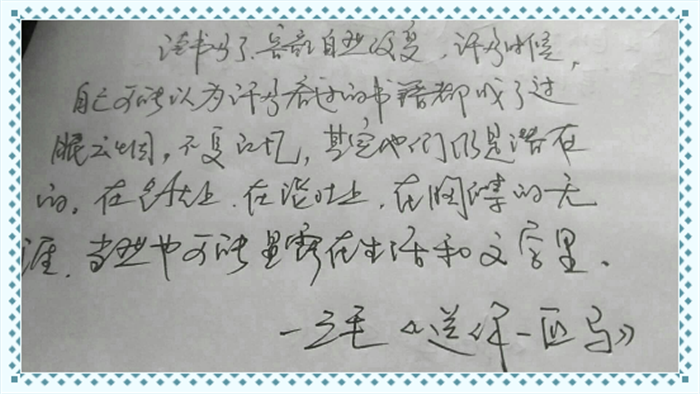 读书多了，容颜自然改变，许多时候，
自己可能以为许多看过的书籍都成了过
眼云烟，不复记忆，其实他们仍是潜在
的。在气质上，在谈吐上，在胸襟的无
涯，当然也可能显露在生活和文字里。
—三毛《送你一匹马》